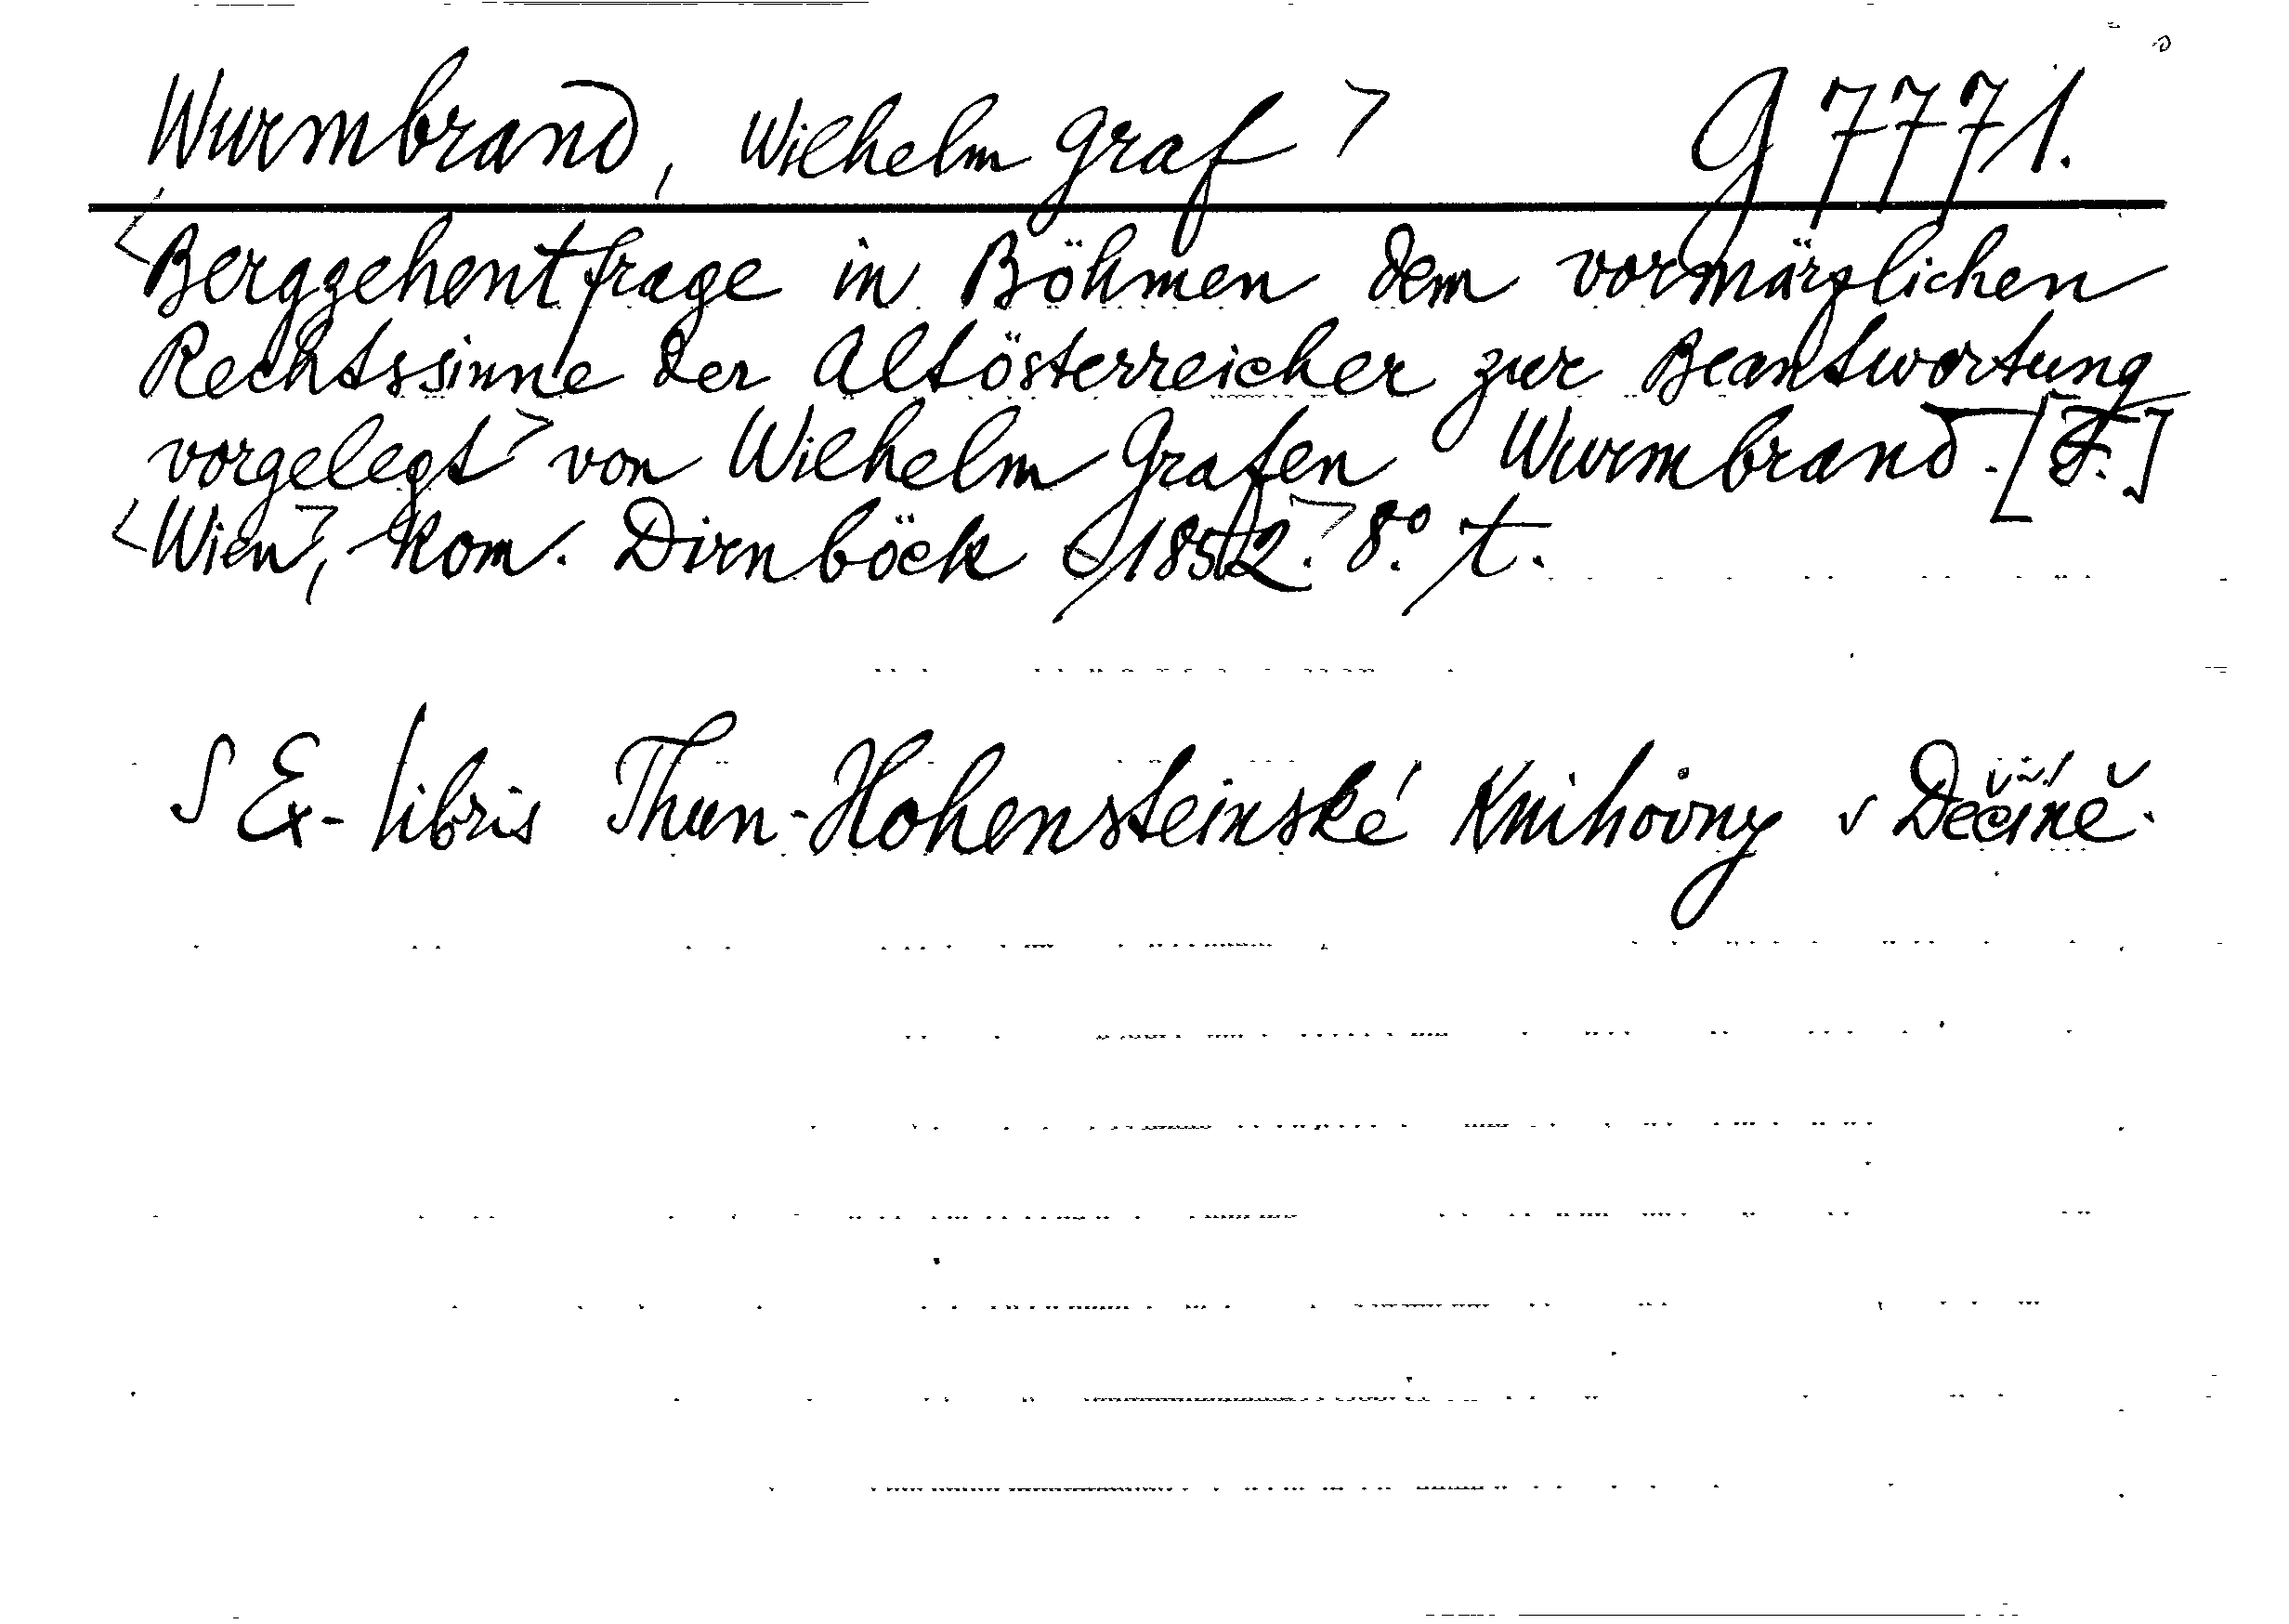 Wurmbrand, Wilhelm Graf > G 7771.
<Bergzehentfrage in Böhmen dem vormärzlichen
Rechtssinne der Altösterreicher zur Beantwortung
vorgelegt> von Wilhelm Grafen Wurmbrand. [F.]
<Wien>, Kom. Dirnböck <1852.> 8° t.
S Ex-libris Thun-Hohensteinské Knihovny v Děčíně.